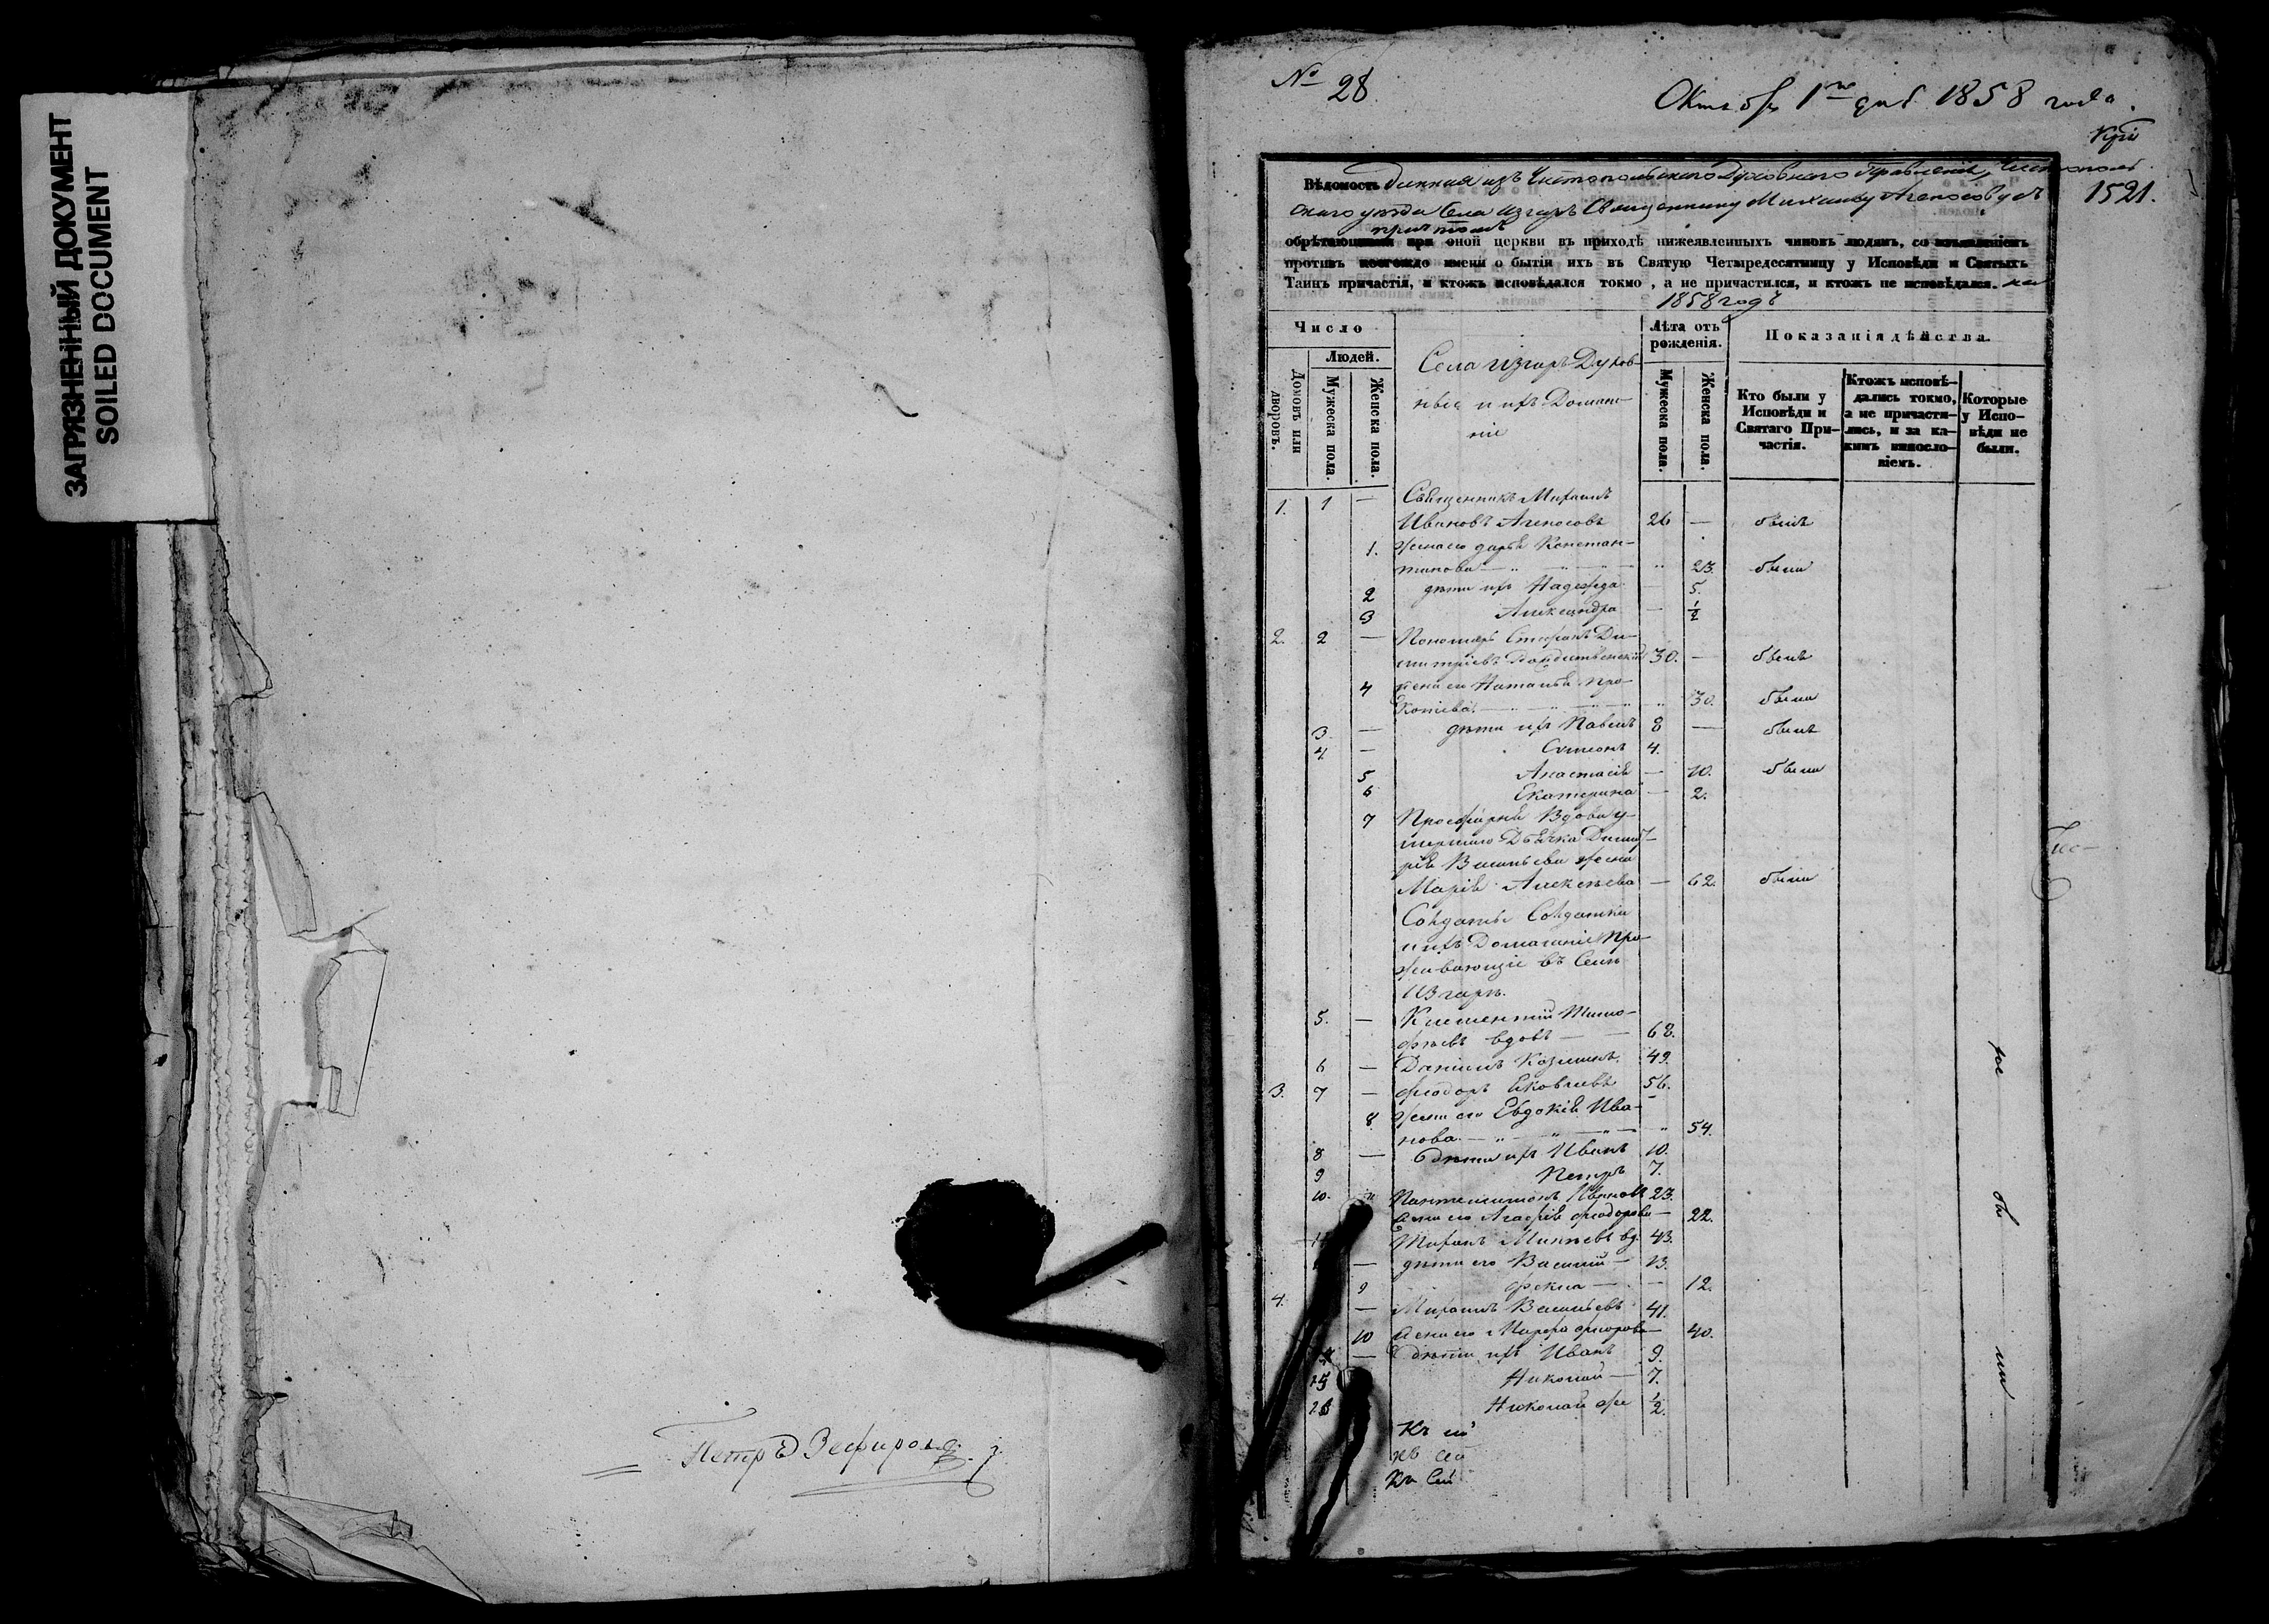 ЗАГРЯЗНЕННЫЙ ДОКУМЕНТ
SOILED DOCUMENT
Петръ Зефировъ
№ 28
Октября 1го дня 1858 года.
1521.
Вѣдомость данная изъ Чистопольскаго Духовнаго Правленія, Чистополь
скаго уѣзда Села Изгаръ Священнику Михаилу съ
причтомъ
обрѣтающимся при оной церкви въ приходѣ нижеявленныхъ чиновъ людямъ, со изъявленіемъ
противъ коегождо имени о бытіи ихъ въ Святую Четыредесятницу у Исповѣди и Святыхъ
Таинъ причастія, и ктожъ исповѣдался токмо, а не причастился, и ктожъ не исповѣдался. на
1858 годъ
Число
Людей.
Домовъ или дворовъ.
Мужеска пола.
Женска пола.
Села Изгаръ Духов-
ныя и ихъ Домаш-
ніе
Лѣта отъ рожденія.
Мужеска пола.
Женска пола.
Показанія дѣйства.
Кто были у Исповѣди и Святаго При-частія.
Ктожъ исповѣ-дались токмо, а не причасти-лись, и за ка-кимъ винословіемъ.
Которые у Испо-вѣди не были.
1. 1 — Священникъ Михаилъ
Ивановъ 26 — былъ
1. Жена его Дарья Констан-
тинова 23. была
2 дѣти ихъ Надежда — 5.
3 Александра — ½
2. 2 — Пономарь Стефанъ Ди-
митріевъ Рождественскій 30. — былъ
4 жена его Наталья Про-
копіева 30. была
3 — дѣти ихъ Павелъ 8 — былъ
4 — Симеонъ 4.
5 Анастасія — 10. была
6 Екатерина — 2.
7 Просфирня Вдова у-
мершаго Дьячка Димит-
рія Васильева жена
Марія Алексѣева — 62. была
Солдаты Солдатки
и ихъ Домашніе Про-
живающіе въ Селѣ
Изгарѣ.
5. — Климентій Тимо-
фѣевъ вдовъ 68.
6 — Даніилъ Козминъ 49.
3. 7 — Феодоръ Яковлевъ 56.
8 Жена его Евдокія Ива-
нова 54.
8 — дѣти ихъ Иванъ 10.
9 Петръ 7.
10. Пантелеимонъ Ивановъ 23.
жена его Агафія Феодорова — 22.
Тихонъ Михѣевъ вд. 43.
— дѣти его Василій — 13.
9 Фекла — 12.
4. — Михаилъ Васильевъ 41.
10 жена его Марфа 40.
— дѣти ихъ Иванъ 9.
15 Николай — 7.
16 Николай же ½.
Къ сей